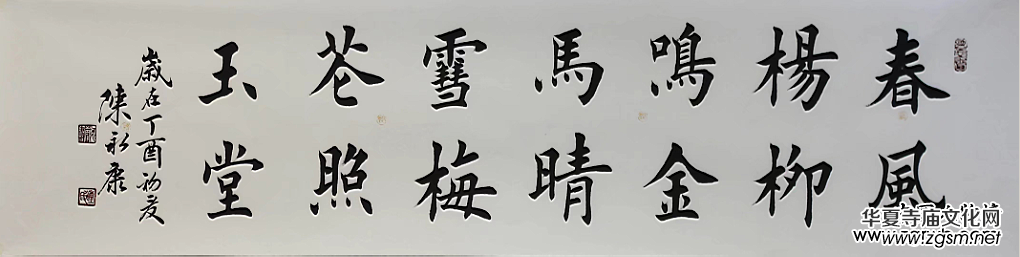 春風
楊柳
鳴金
馬晴
雪梅
花照
玉堂
歲在丁酉初夏
陳永康
华夏寺庙文化网
www.zgsm.net